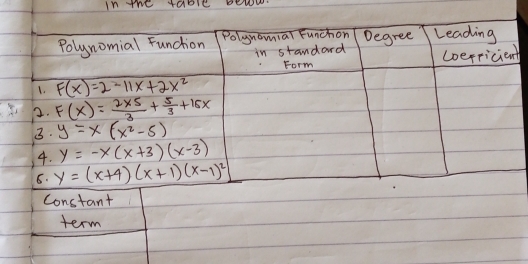 in the table below.
Polynomial Function | Polynomial Function in standard Form | Degree | Leading Coefficient
1. F(x)=2-11x+2x²
2. F(x)= 2x5/3 + 5/3 +15x
3. y = x (x²-5)
4. y = -x(x+3)(x-3)
5. y = (x+4)(x+1)(x-1)²
Constant
term